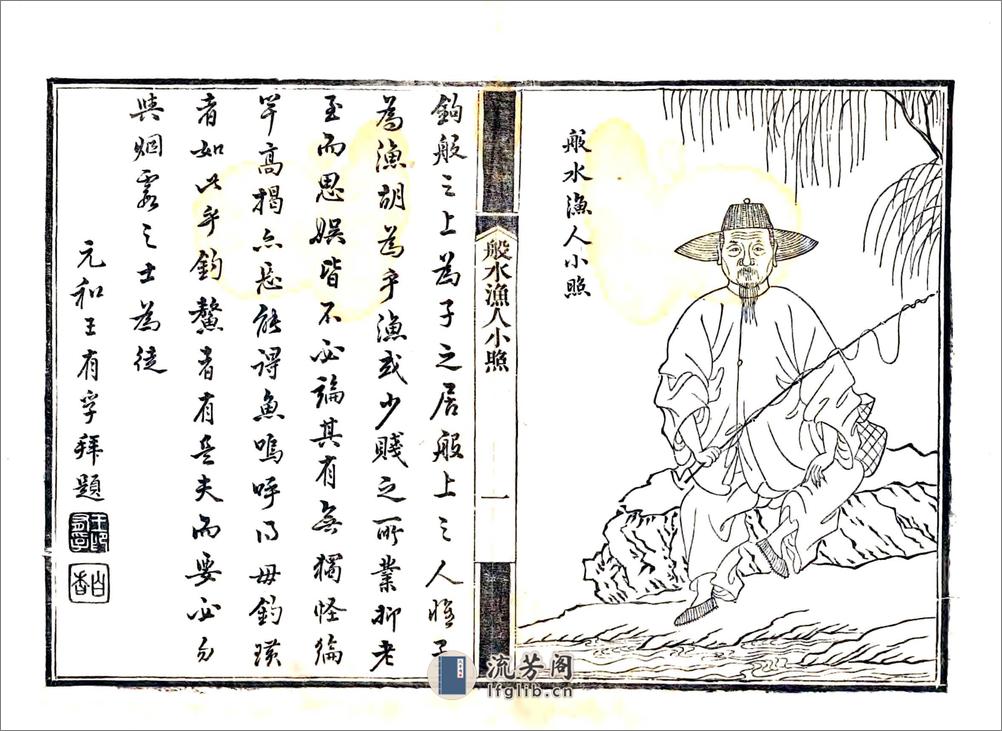 般水漁人小照
般水漁人小照
一
鈎般之上為子之居般上之人惟子
為漁胡為乎漁或少賤之所業抑老
至而思娛皆不必論其有無獨怪綸
竿高揭亦烏能得魚嗚呼得毋鈎璜
者如此乎鈎鰲者有是夫而要必勿
與烟霞之士為徒
元和王有孚拜題
流芳阁
lfglib.cn